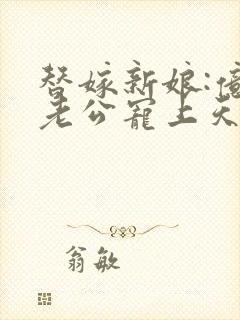 替嫁新娘:億
老公寵上天
翁敏